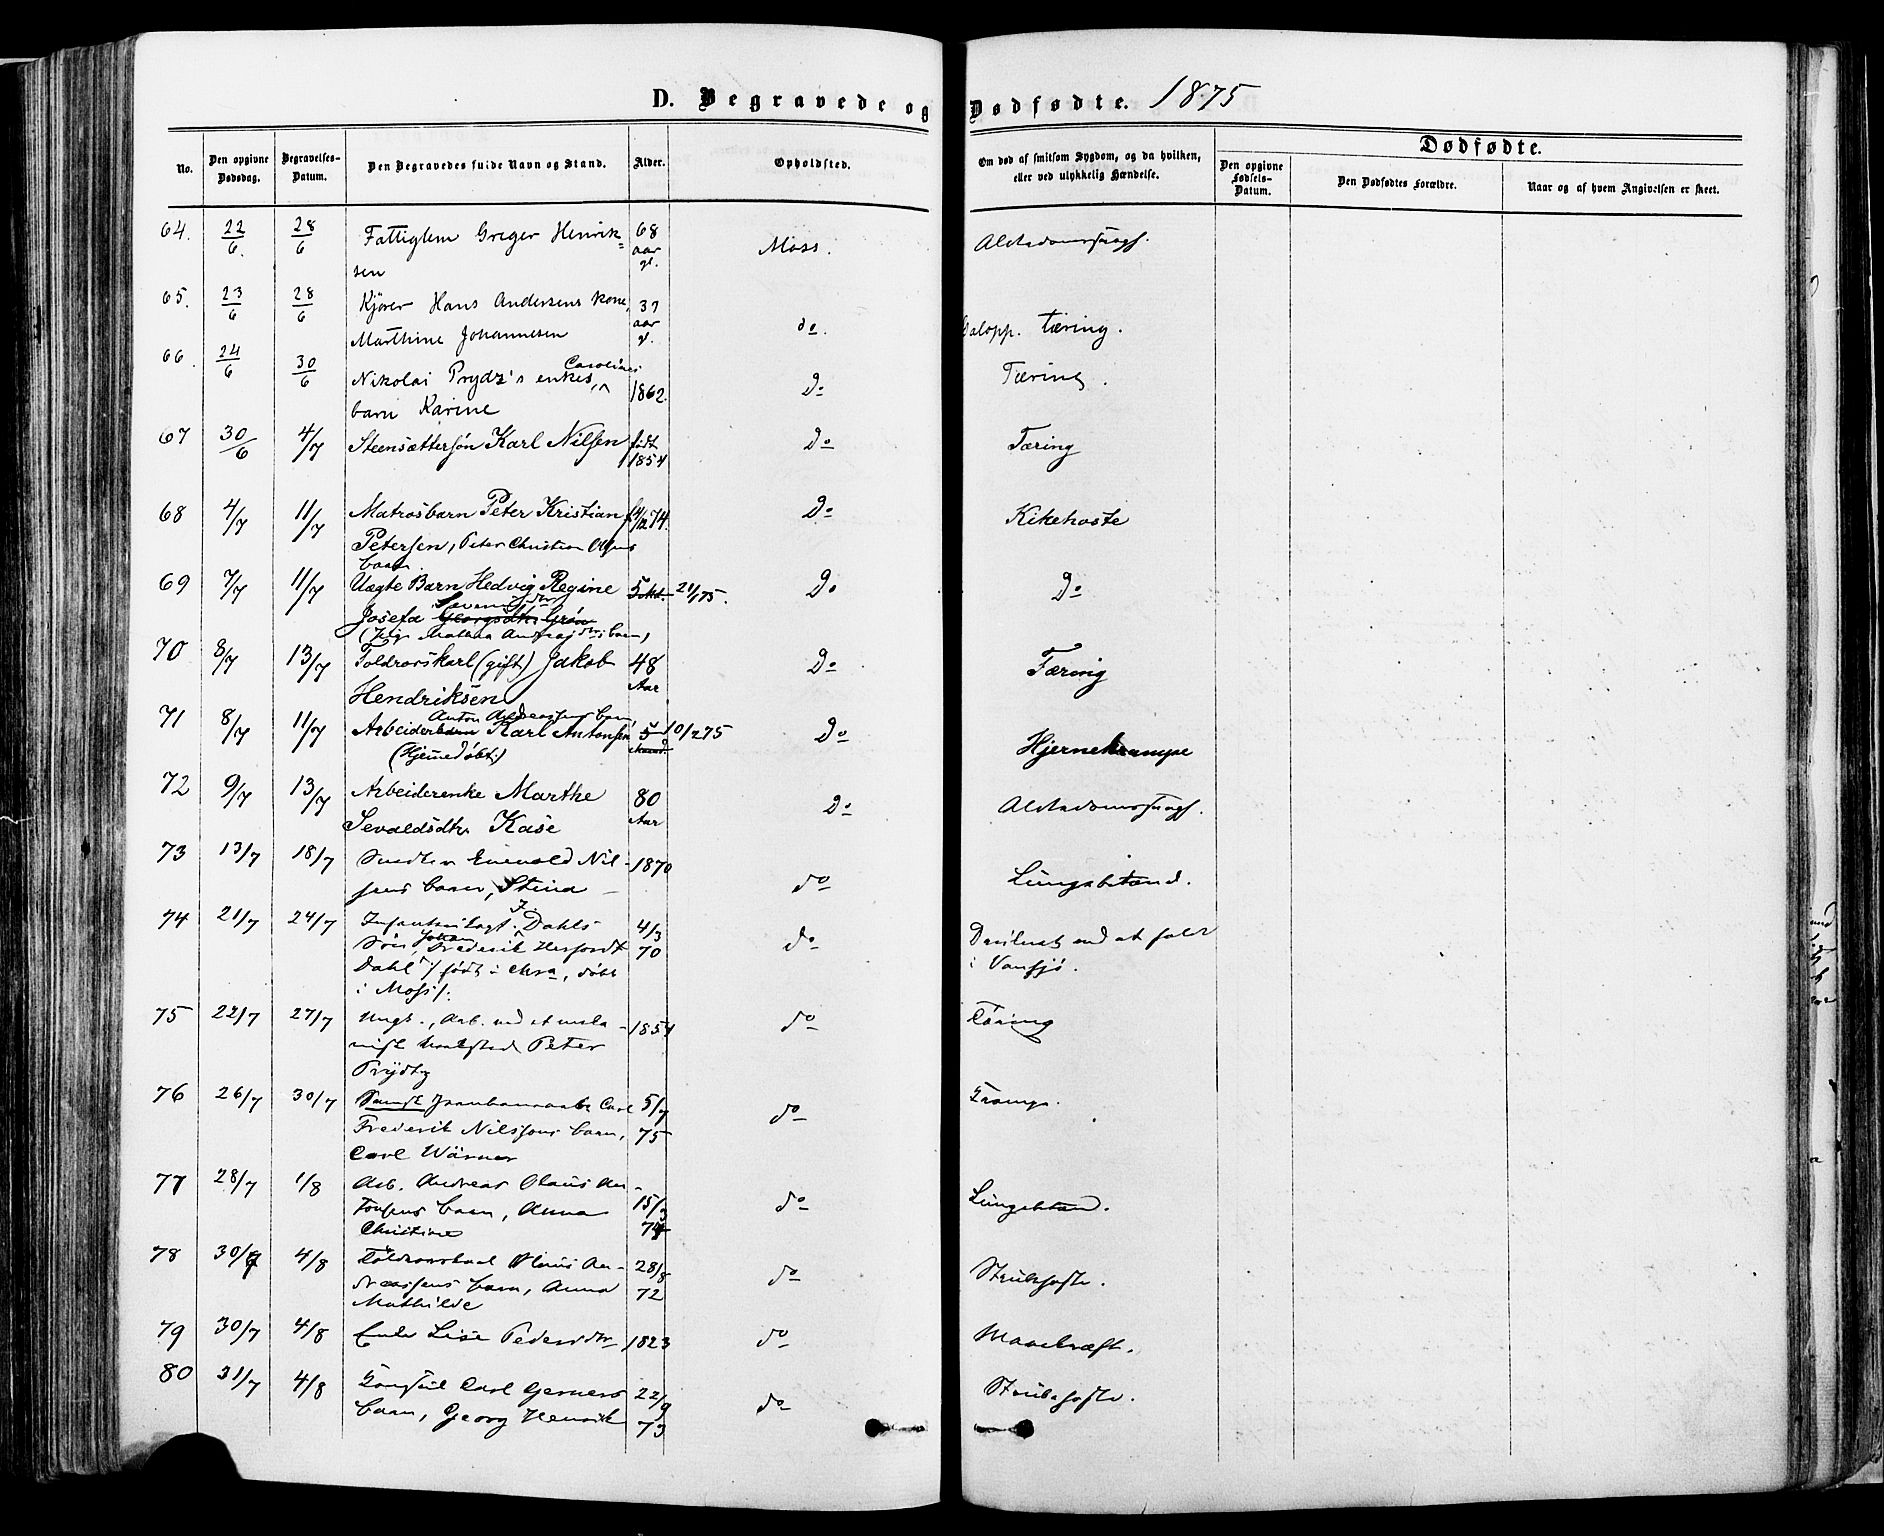 D. Begravede og Dødfødte. 1875
No.
Den opgivne Dødsdag.
Begravelses-Datum.
Den Begravedes fulde Navn og Stand.
Alder.
Opholdsted.
Om død af smitsom Sygdom, og da hvilken, eller ved ulykkelig Hændelse.
Dødfødte.
Den opgivne Fødsels-Datum.
Den Dødfødtes Forældre.
Naar og af hvem Angivelsen er skeet.
64. 22/6. 28/6 Fattiglem Greger Henrik= 68 Moss. Alderdomssvagh.
sen aar gl.
65. 23/6 28/6 Kjører Hans Andersens kone, 37 do. Galopp. tæring.
Marthine Johannesen aar gl.
66. 24/6 30/6 Nikolai Prydz's enkes, Carolines 1862. Do Tæring.
barn Karine
67 30/6 4/7 Steensættersøn Karl Nilsen født 1854 Do Tæring
68 4/7 11/7 Matrosbarn Peter Kristian f 4/12 74. Do Kikehoste
Petersen, Peter Christian Olsens
barn.
69 7/7 11/7 Uægte Barn Hedvig Regine 5 Md. 21/1 75. Do Do
Josefa Georgsdtr Grøn
70 8/7 13/7 Toldrorskarl (gift) Jakob 48 Do Tæring
Hendriksen Aar
71 8/7 11/7 Anton Andreassens barn,
Arbeiderbarn Karl Antonsen 5 Maand. 10/2 75 Do Hjernekrampe
(Hjemmedøbt)
72 9/7 13/7 Arbeiderenke Marthe 80 Do Alderdomssvagh.
Sevaldsdtr Kase Aar
73 13/7 18/7 Smedsv. Enevold Nil- 1870 do Lungebetænd.
sens barn, Stina
74 21/7 24/7 Dahls 4/3 70 do Druknet ved at falde
Søn Johan Frederik Herfordt i Vansjø.
Dahl / født i Chra, døbt
i Moss /.
75 22/7 27/7 Ungk., Arb. ved et meka- 1854 do Tæring
nisk Værksted Peter
Prydtz
76 26/7 30/7 Carl 5/7 75 do Krampe.
Frederik Nilssens barn,
Carl Wärner
77 28/7 1/8 Arb. Andreas Olaus An- 15/3 74 do Lungebetænd.
tonsens barn, Anna
Christine
78 30/7 4/8 Toldrorskarl Olaus An- 28/8 72 do Strubehoste.
dreassens barn, Anna
Mathilde
79 30/7 4/8 Enke Lise Pedersdtr 1823 do Mavekræft.
80 31/7 4/8 Konsul Carl Gerners 22/9 73 do Strubehoste.
barn, Georg Henrik